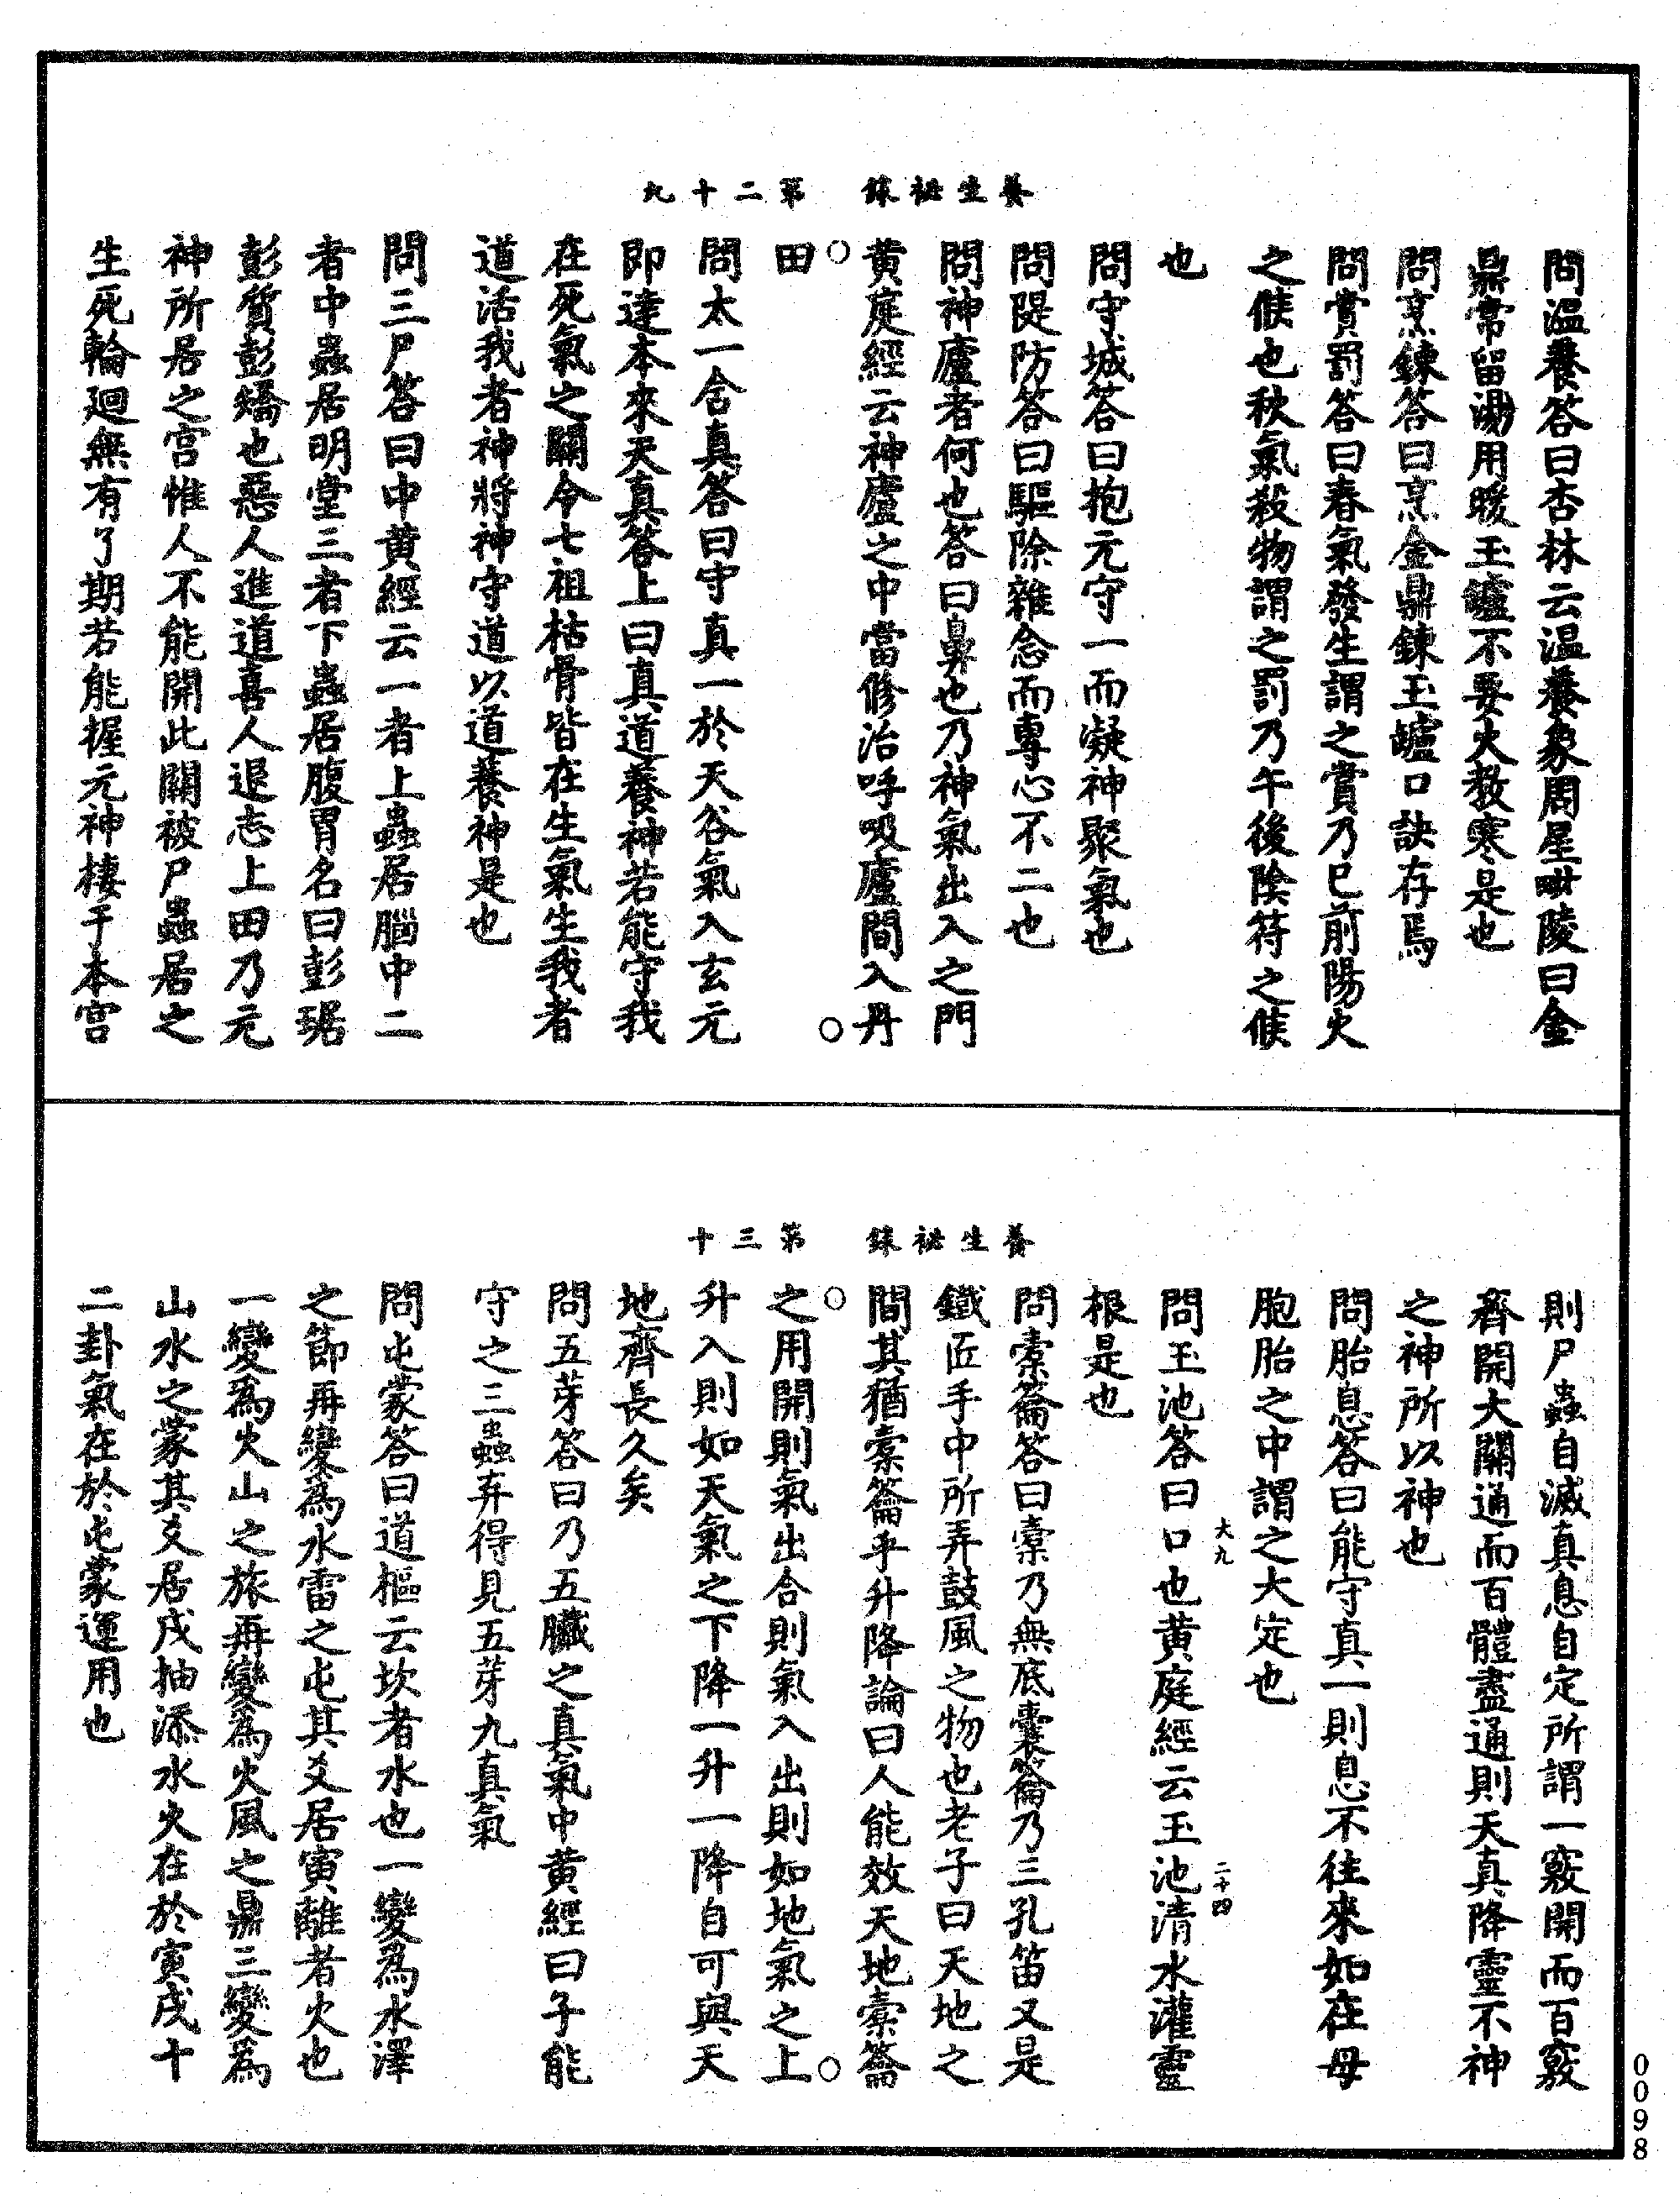 養生祕錄　第二十九
問溫養答曰杏林云溫養象周星毗陵曰金
鼎常留湯用暖玉鑪不要火教寒是也
問烹鍊答曰烹金鼎鍊玉鑪口訣存焉
問賞罰答曰春氣發生謂之賞乃巳前陽火
之候也秋氣殺物謂之罰乃午後陰符之候
也
問守城答曰抱元守一而凝神聚氣也
問隄防答曰驅除雜念而專心不二也
問神廬者何也答曰鼻也乃神氣出入之門
黃庭經云神廬之中當修治呼吸廬間入丹
田
問太一含真答曰守真一於天谷氣入玄元
即達本來天真答上曰真道養神若能守我
在死氣之關令七祖枯骨皆在生氣生我者
道活我者神將神守道以道養神是也
問三尸答曰中黃經云一者上蟲居腦中二
者中蟲居明堂三者下蟲居腹胃名曰彭琚
彭質彭矯也惡人進道喜人退志上田乃元
神所居之宮惟人不能開此關被尸蟲居之
生死輪迴無有了期若能握元神棲于本宮
養生祕錄　第三十
則尸蟲自滅真息自定所謂一竅開而百竅
齊開大關通而百體盡通則天真降靈不神
之神所以神也
問胎息答曰能守真一則息不往來如在母
胞胎之中謂之大定也
問玉池答曰口也黃庭經云玉池清水灌靈
大九
二十四
根是也
問橐籥答曰橐乃無底囊籥乃三孔笛又是
鐵匠手中所弄鼓風之物也老子曰天地之
間其猶橐籥乎升降論曰人能效天地橐籥
之用開則氣出合則氣入出則如地氣之上
升入則如天氣之下降一升一降自可與天
地齊長久矣
問五芽答曰乃五臟之真氣中黃經曰子能
守之三蟲弃得見五芽九真氣
問屯蒙答曰道樞云坎者水也一變爲水澤
之節再變爲水雷之屯其爻居寅離者火也
一變爲火山之旅再變爲火風之鼎三變爲
山水之蒙其爻居戌抽添水火在於寅戌十
二卦氣在於屯蒙運用也
0098